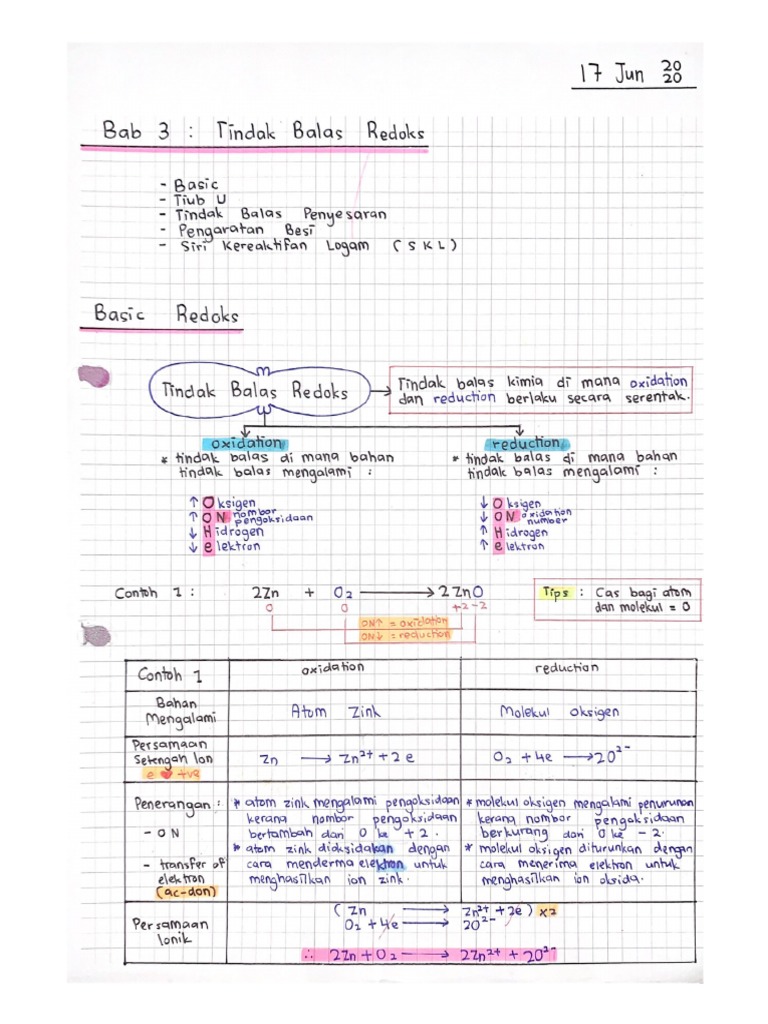 17 Jun 20
20
Bab 3 : Tindak Balas Redoks
- Basic
- Tiub U
- Tindak Balas Penyesaran
- Pengaratan Besi
- Siri Kereaktifan Logam (SKL)
Basic Redoks
Tindak Balas Redoks
Tindak balas kimia di mana oxidation
dan reduction berlaku secara serentak.
oxidation
* tindak balas di mana bahan
tindak balas mengalami :
↑ Oksigen
↑ ON nombor pengoksidaan
↓ Hidrogen
↓ elektron
reduction
* tindak balas di mana bahan
tindak balas mengalami :
↓ Oksigen
↓ ON oxidation number
↑ Hidrogen
↑ elektron
Contoh 1 : 2Zn + O₂ → 2ZnO
0 0 +2 -2
ON↑ = oxidation
ON↓ = reduction
Tips : Cas bagi atom
dan molekul = 0
Contoh 1
oxidation
reduction
Bahan
Mengalami
Atom Zink
Molekul oksigen
Persamaan
Setengah Ion
e ♥ +ve
Zn → Zn²⁺ + 2e
O₂ + 4e → 2O²⁻
Penerangan :
- ON
- transfer of
elektron
(ac-don)
* atom zink mengalami pengoksidaan
kerana nombor pengoksidaan
bertambah dari 0 ke +2.
* atom zink dioksidakan dengan
cara menderma elektron untuk
menghasilkan ion zink.
* molekul oksigen mengalami penurunan
kerana nombor pengoksidaan
berkurang dari 0 ke -2.
* molekul oksigen diturunkan dengan
cara menerima elektron untuk
menghasilkan ion oksida.
Persamaan
Ionik
(Zn → Zn²⁺ + 2e) x2
O₂ + 4e → 2O²⁻
∴ 2Zn + O₂ → 2Zn²⁺ + 2O²⁻